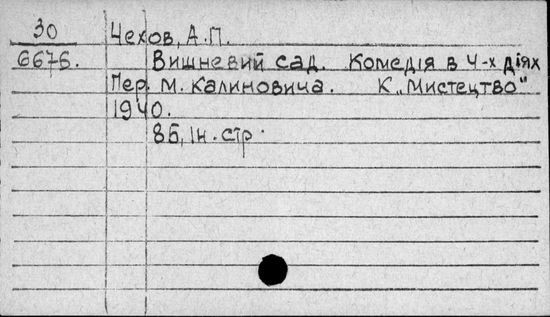 30 Чехов, А.П.
6676. Вишневий сад. Комедія в 4-х діях
Пер. М. Калиновича. К. „Мистецтво"
1940.
85, Ін. стр.